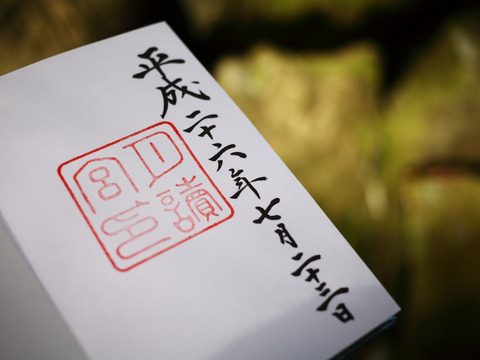 平成二十六年七月二十三日
月讀
宮印